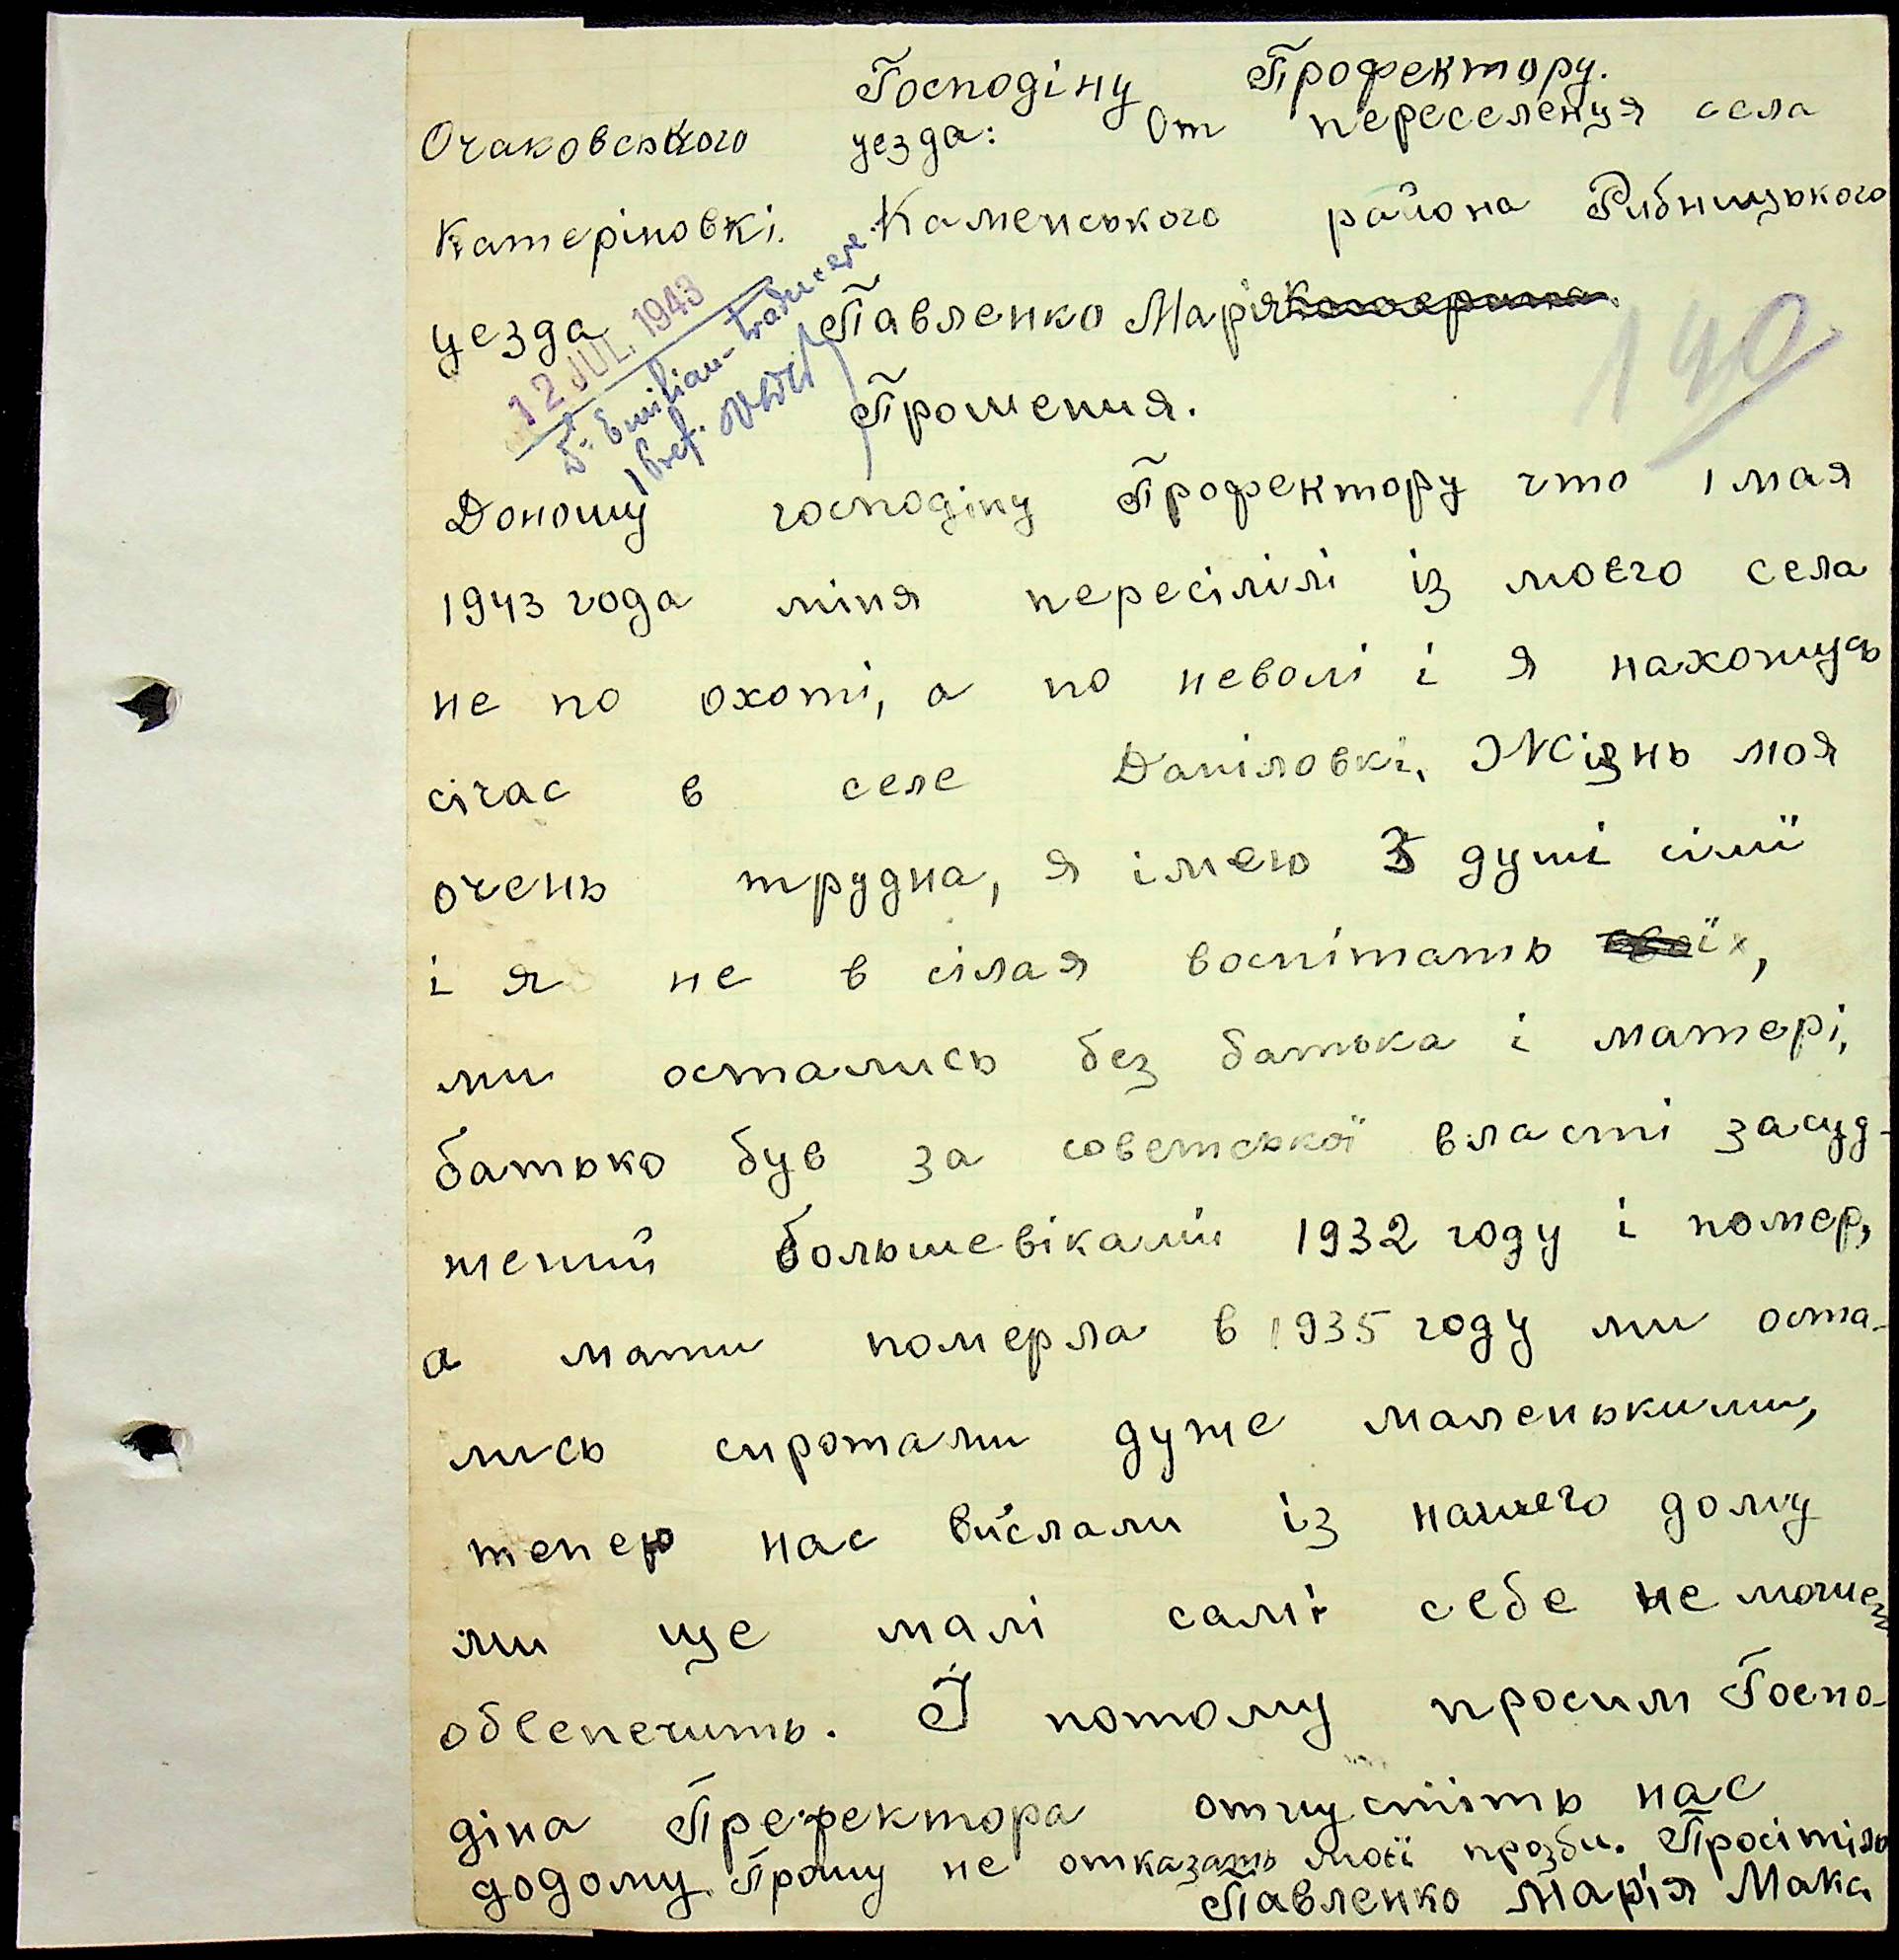 Господіну Профектору.
Очаковського уезда: От переселенця села
Катеріновкі. Каменського района Рибницького
уезда Павленко Марія
12 JUL. 1943
D-l Emilian - traducere.
Pref.
140
Прошения.
Доношу господіну Профектору что 1 мая
1943 года міня пересілілі із моєго села
не по охоті, а по неволі і я нахожусь
січас в селе Даніловкі. Жізнь моя
очень трудна, я імею 3 душі сімії
і я не в сілая воспітать своїх,
ми остались без батька і матері,
батько був за советської власті засуд-
жений большевіками 1932 году і помер,
а мати померла в 1935 году ми оста-
лись сиротами дуже маленькими,
тепер нас вислали із нашего дому
ми ще малі самі себе не можем
обсепечить. І потому просим Госпо-
діна Префектора отпустіть нас
додому. Прошу не отказать моєї прозби. Просітіль
Павленко Марія Мака